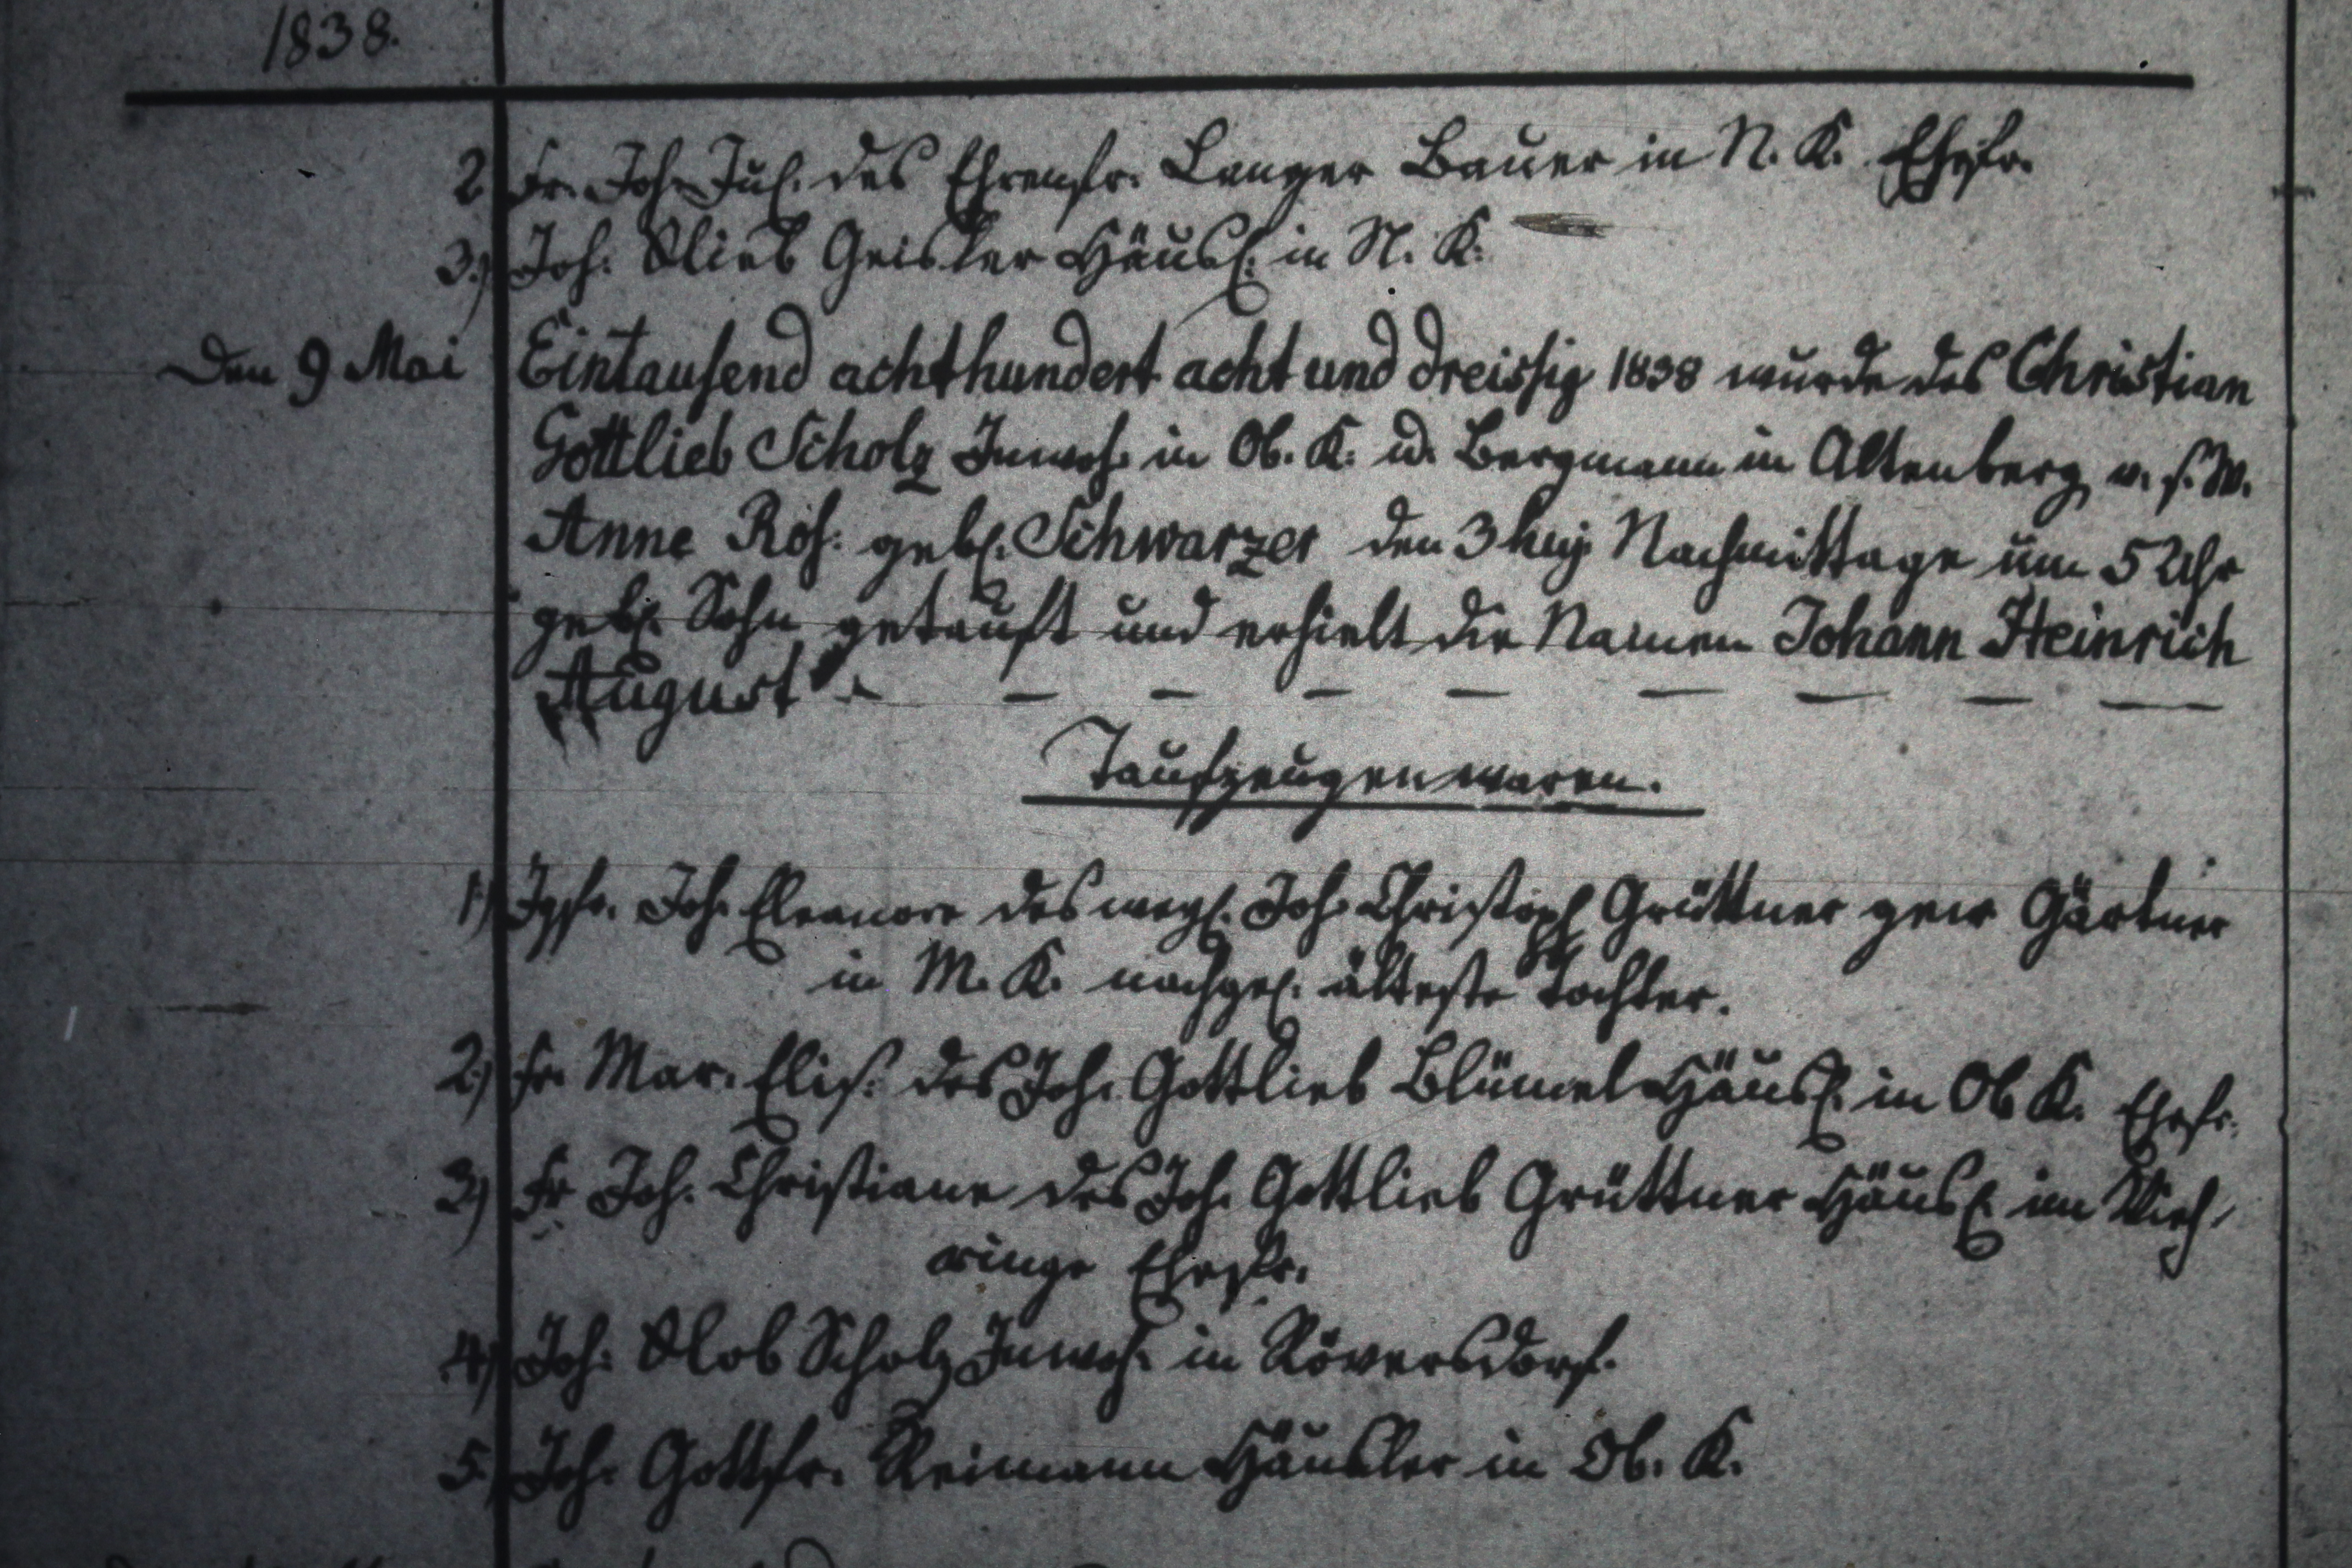 1838.
2. Fr. Joh. Jul. des Ehrenfr. Langer Bauer in N. K. Ehefr.
3.) Joh. Glieb Geisler Häusl. in N. K.
Den 9 Mai Eintausend achthundert acht und dreissig 1838 wurde des Christian
Gottlieb Scholz Inwoh. in Ob. K. u. Bergmann in Altenberg v. s. W.
Anne Ros: gebl. Schwarzer den 3 huj. Nachmittage um 5 Uhr
gebl. Sohn getauft und erhielt die Namen Johann Heinrich
August - - - - - - - - -
Taufzeugen waren.
1) Jgfr. Joh. Eleanore des weyl. Joh. Christoph Grüttner gew Gärtner
in M. K. nachgel. älteste Tochter.
2.) Fr. Mar. Elis. des Joh. Gottlieb Blümel Häusl. in Ob K. Ehefr.
3) Fr Joh. Christiane des Joh. Gottlieb Grüttner Häusl. im Vieh-
ringe Ehefr.
4) Joh: Glob Scholz Inwoh. in Röversdorf.
5.) Joh. Gottfr. Reimann Häusler in Ob. K.